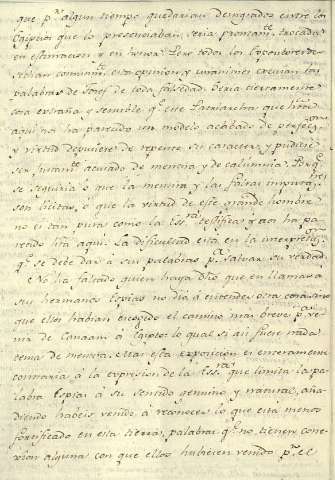 que p.r algun tiempo quedaran desayrados entre los
Egipcios que lo presenciaban, seria promam.te trocada
en estimacion y en honor. Pero todos los Expositores
creian comunm.te esta opinion, y unanimes excusan las
palabras de Josef de toda falsedad. Seria ciertamente
cosa extraña y sensible q.e este Patriarcha que hasta
aqui nos ha parecido un modelo acabado de perfec.on
y virtud depusiere de repente su caracter, y pudiere
ser justam.te acusado de mentira y de calumnia. Porq.e
se seguiria ó que la mentira y las falsas imputac.nes
son licitas, ó que la virtud de este grande hombre
no es tan pura como la Ess.ra testifica, y nos ha pa-
recido hta aqui. La dificultad está en la interpretac.on
q.e se debe dar á sus palabras p.a salvar su verdad.
No ha faltado quien haya dho que en llamar a
sus hermanos Espias no dio á entender otra cosa sino
que ellos habian escogido el camino mas breve p.a ve-
nir de Canaam á Egipto: lo qual si asi fuere nada
tenia de mentira. Mas esta exposicion es enteramente
contraria á la expresion de la Ess.ra que limita la pa-
labra Espias á su sentido genuino y natural, aña-
diendo habeis venido á reconocer lo que está menos
fortificado en esta tierra, palabras q.e no tienen cone-
xion alguna con que ellos hubiesen venido p.r el